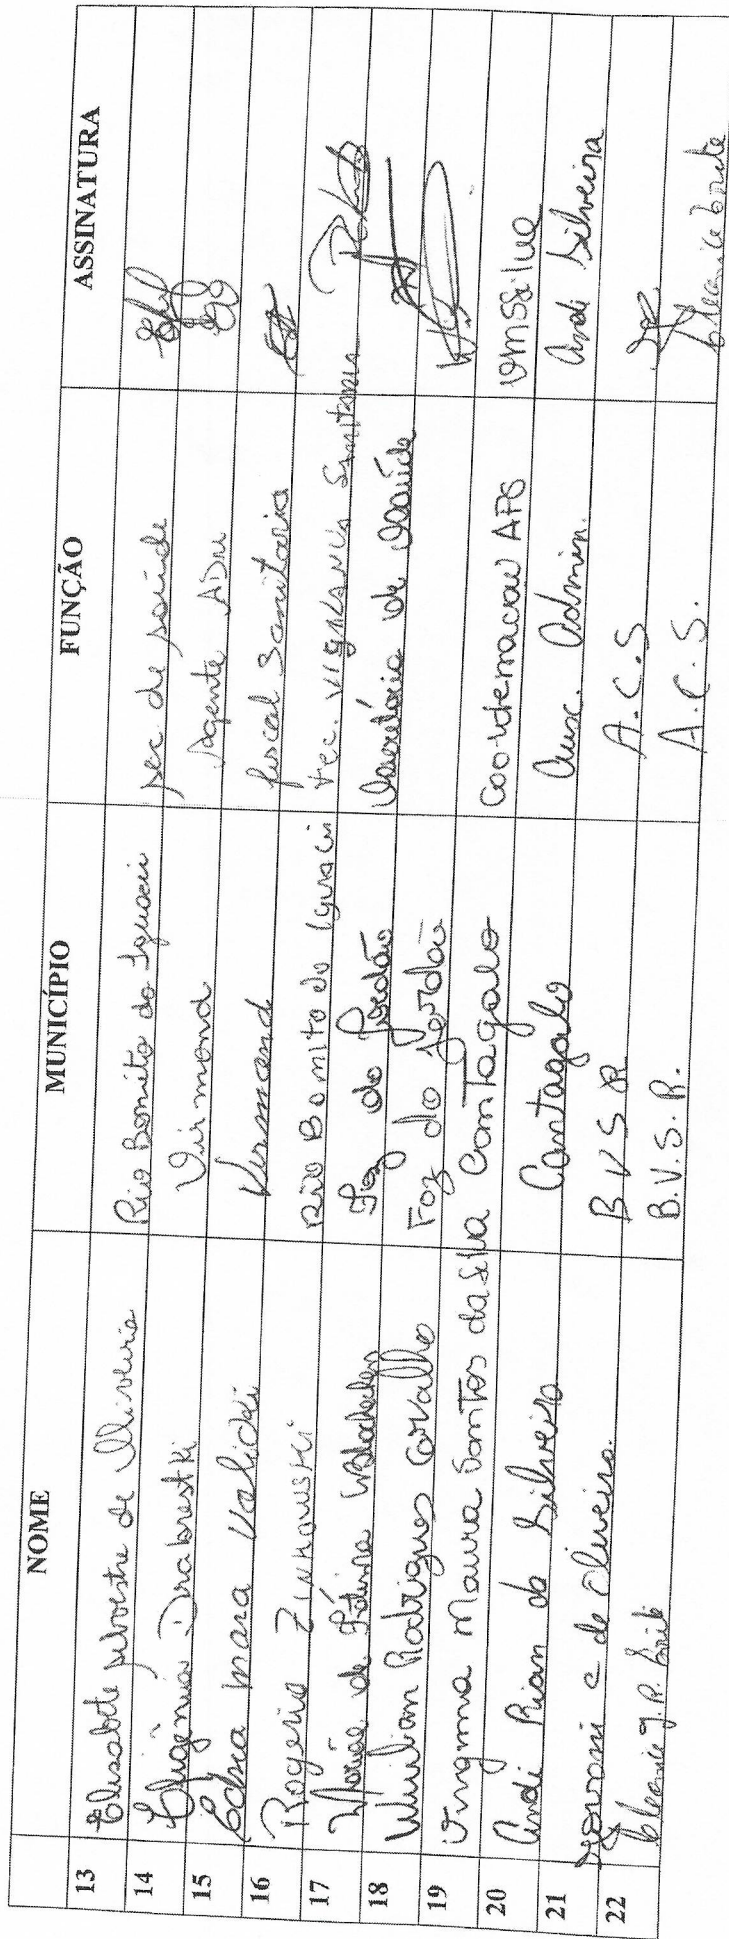 NOME MUNICÍPIO FUNÇÃO ASSINATURA
13 Elisabete silvestre de Oliveira Rio Bonito do Iguaçu sec. de saúde
14 Eugênia Drabrestki Virmond Agente ADM
15 Edna Mara Valicki Virmond fiscal Sanitaria
16 Rogerio Zinkowski Rio Bonito do Iguacu tec. vigilancia Sanitaria
17 Maria de Fátima Foz do Jordão Secretária de Saúde
18 Wuilian Rodrigues Carvalho Foz do Jordão
19 Maura Santos da Silva Cantagalo Coordenacao APS VMSSilva
20 Andi Rian da Silveira Cantagalo Aux. Admin. Andi Silveira
21 c de Oliveira. B V S R A.C.S
22 Cleonice J. R. B.V.S.R. A.C.S.